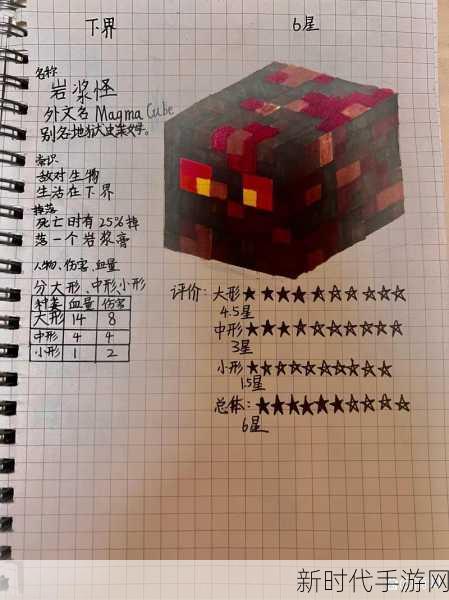 下界
6星
名称
岩浆怪
外文名 Magma Cube
别名地狱史莱姆。
常识
敌对生物
生活在下界
掉落
死亡时有25%掉
落一个岩浆膏
人物、伤害、血量
分大形、中形小形
种类 血量 伤害
大形 14 8
中形 4 4
小形 1 2
评价：大形★★★★★☆☆☆☆☆
4.5星
中形★★★☆☆☆☆☆☆☆
3星
小形★★☆☆☆☆☆☆☆☆
1.5星
总体：★★★★★★☆☆☆☆
6星
新时代手游网